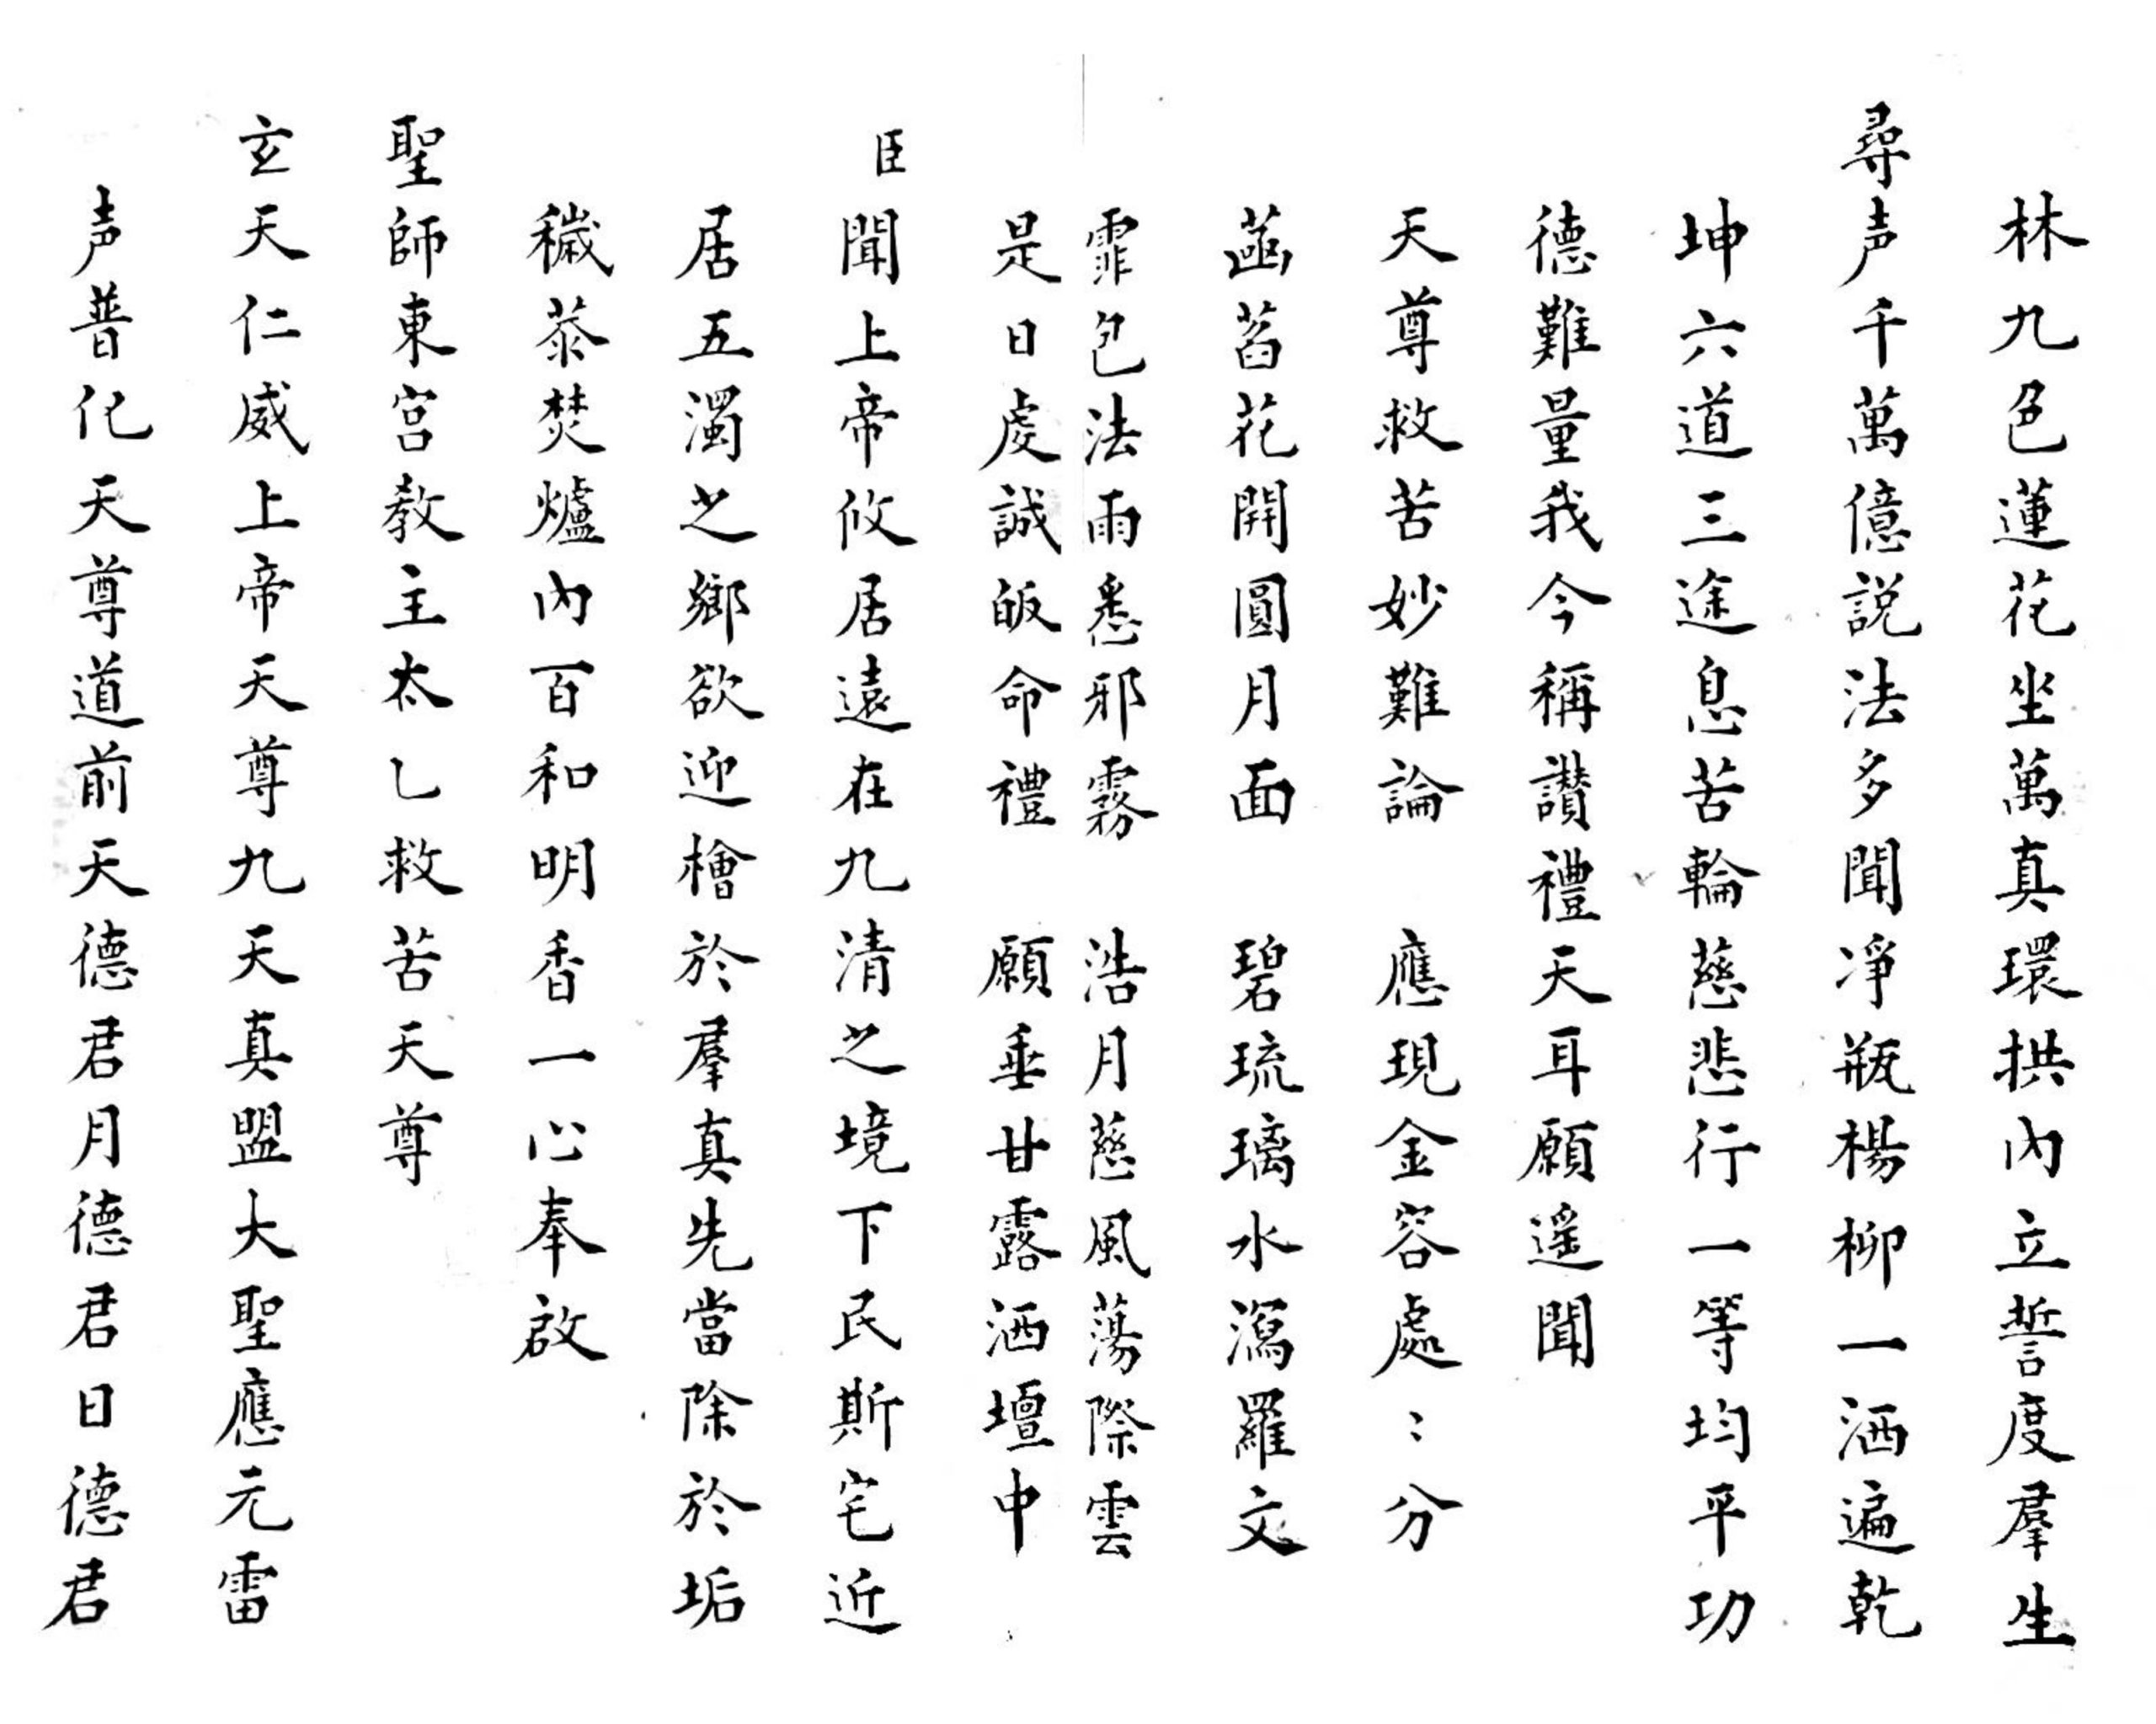 林九色蓮花坐萬真環拱內立誓度羣生
尋声千萬億説法多聞凈瓶楊柳一洒遍乾
坤六道三途息苦輪慈悲行一等均平功
德難量我今稱讃禮天耳願遥聞
天尊救苦妙難論　應現金容處〻分
菡萏花開圓月面　碧琉璃水瀉羅文
霏包法雨悉邪霧　浩月慈風蕩際雲
是日虔誠皈命禮　願垂甘露洒壇中
臣聞上帝攸居遠在九清之境下民斯宅近
居五濁之鄉欲迎檜於羣真先當除於垢
穢㳟焚爐內百和明香一心奉啟
聖師東宮教主太乚救苦天尊
玄天仁威上帝天尊九天真盟大聖應元雷
声普化天尊道前天德君月德君日德君